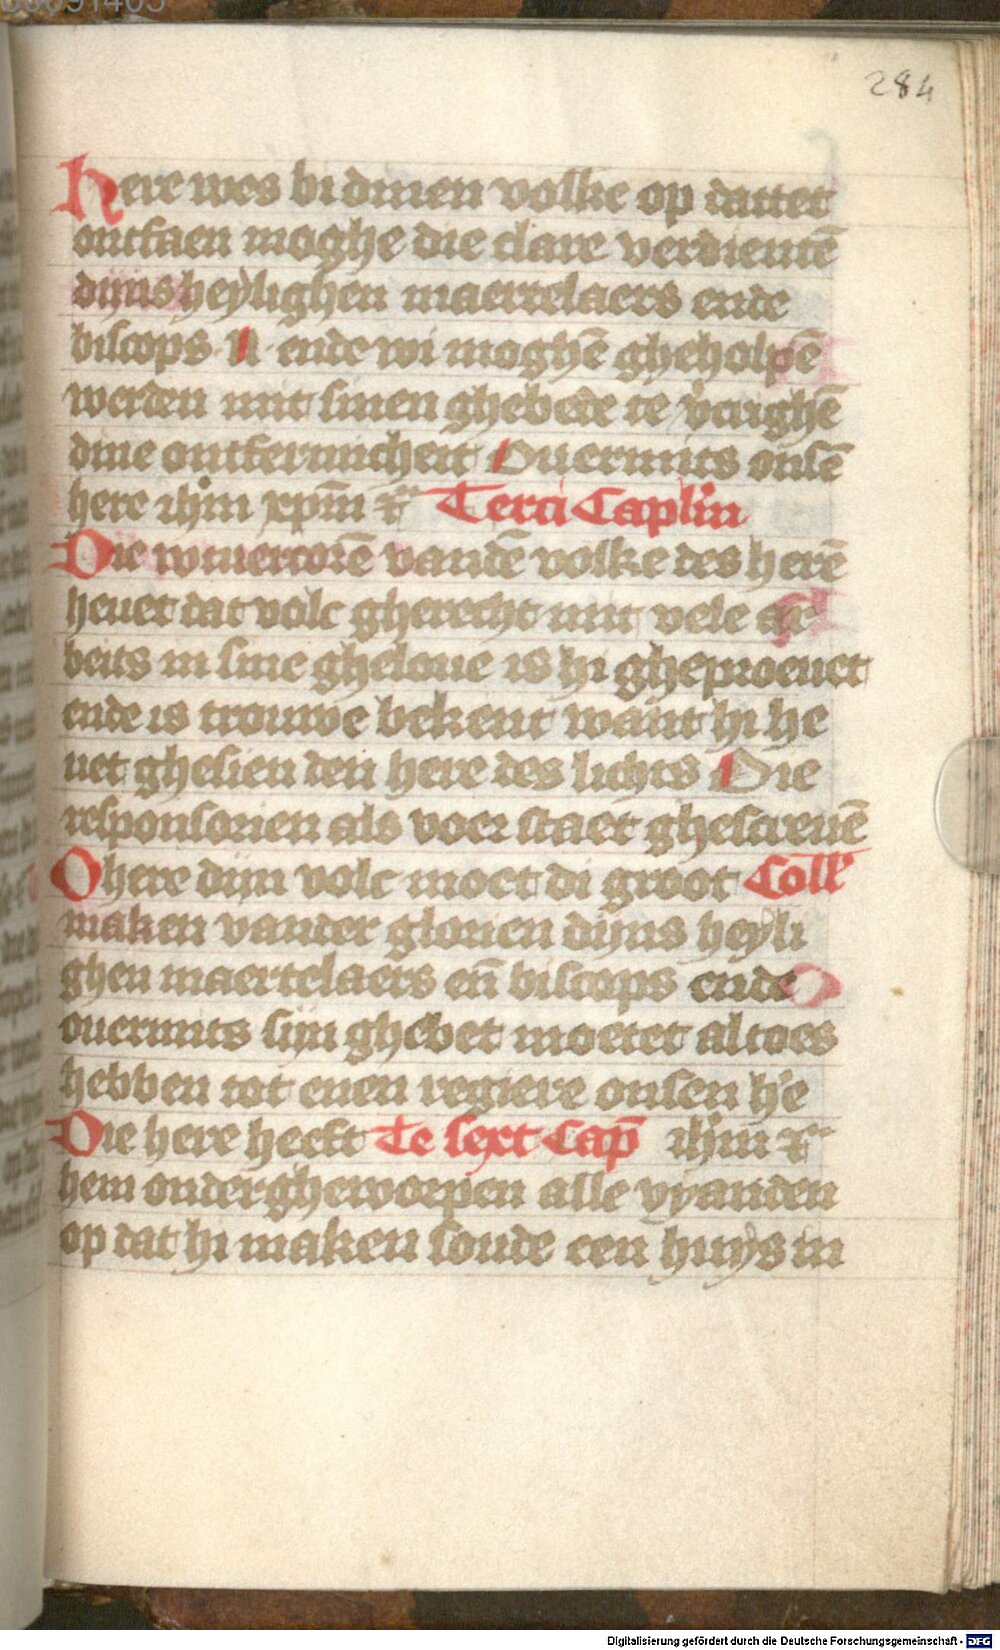 284
Here wes bi dinen volke op dattet
ontfaen moghe die clare verdientē
dijns heylighen maertelaers ende
biscops N ende wi moghē gheholpē
werden mit sinen ghebede te v̓crighē
dine ontfermicheit Ouermits onsē
here ihm̄ xpm̄ ⁊c̄ Terci Caplm̄
Die wtuercorē vandē volke des herē
heuet dat volc gherecht mit vele ar
beits in sine gheloue is hi gheproeuet
ende is trouwe bekent want hi he
uet ghesien den here des lichts Die
responsorien als voer staet ghescreuē
O here dijn volc moet di groot Coll̄
maken vander glorien dijns heyli
ghen maertelaers eñ biscops ende
ouermits sijn ghebet moetet altoes
hebben tot enen regiere onsen h̓e
Die here heeft Te sext Cap̄ ihm̄ ⁊c̄
hem ondergheworpen alle vyanden
op dat hi maken soude een huys in
Digitalisierung gefördert durch die Deutsche Forschungsgemeinschaft - DFG